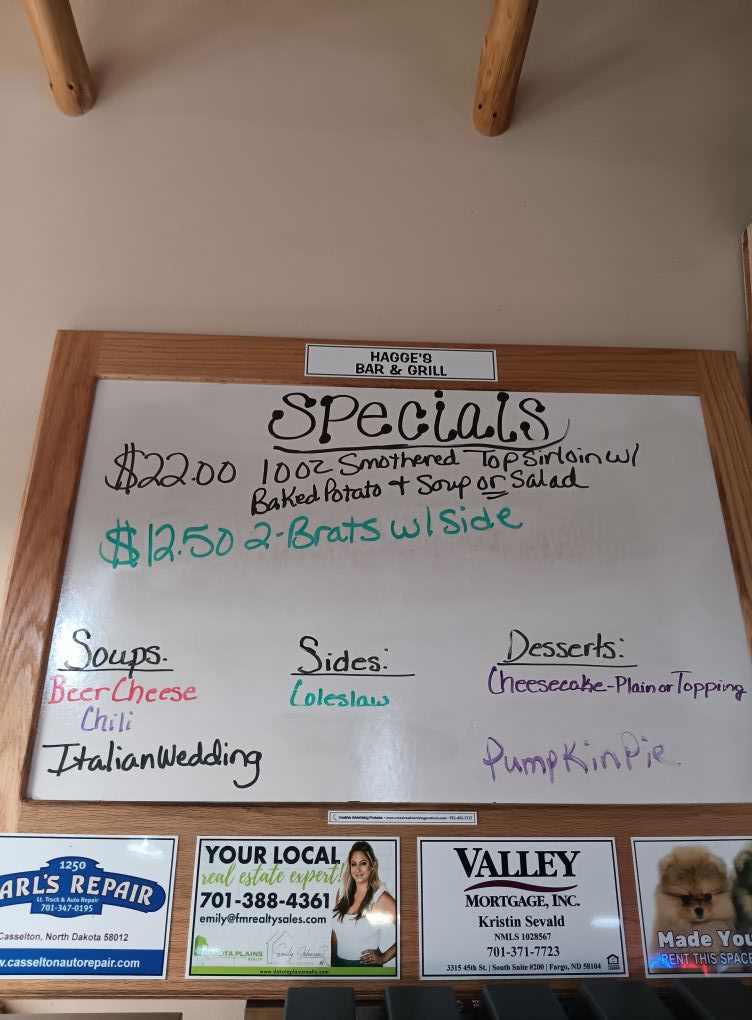 HAGGE'S
BAR & GRILL
Specials
$22.00 10oz Smothered Top Sirloin w/
Baked Potato + Soup or Salad
$12.50 2-Brats w/ Side
Soups:
Beer Cheese
Chili
Italian Wedding
Sides:
Coleslaw
Desserts:
Cheesecake-Plain or Topping
Pumpkin Pie
Creative Advertising Products • www.creativeadvertisingproducts.com •
1250
ARL'S REPAIR
Lt. Truck & Auto Repair
701-347-0195
Casselton, North Dakota 58012
w.casseltonautorepair.com
YOUR LOCAL
real estate expert!
701-388-4361
emily@fmrealtysales.com
DAKOTA PLAINS
REALTY
Emily Johnson
www.dakotaplainsrealty.com
VALLEY
MORTGAGE, INC.
Kristin Sevald
NMLS 1028567
701-371-7723
3315 45th St. | South Suite #200 | Fargo, ND 58104
Made You
RENT THIS SPACE